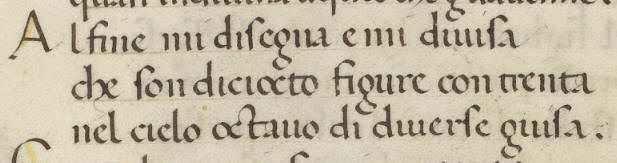 Al fine mi disegna e mi diuisa
che son diciocto figure con trenta
nel cielo octauo di diuerse guisa .